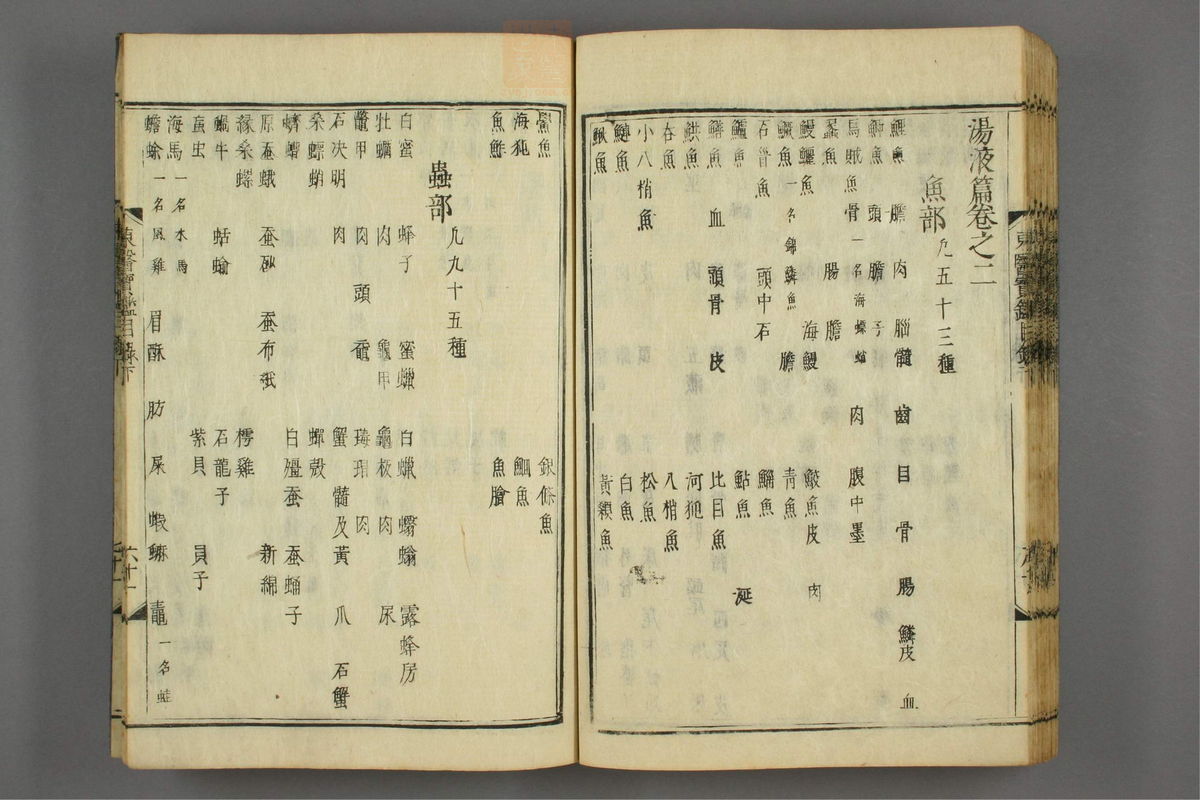 湯液篇卷之二
魚部 凡五十三種
鯉魚 膽 肉 腦髓 齒 目 骨 腸 鱗皮 血
鯽魚 頭 膽 子
烏賊魚骨 一名海螵蛸 肉 腹中墨
蠡魚 腸 膽
鰻鱺魚 海鰻 鮫魚皮 肉
鱖魚 一名錦鱗魚 膽 青魚
石首魚 頭中石 鯔魚
鱸魚 鮎魚 涎
鱔魚 血 頭骨 皮 比目魚
鯕魚 河㹠
杏魚 八梢魚
小八梢魚 松魚
鰱魚 白魚
鰍魚 黃顙魚
鱟魚 銀條魚
海㹠 鮰魚
魚鮓 魚膾
蟲部 凡九十五種
白蜜 蜂子 蜜蠟 白蠟 蠮螉 露蜂房
牡蠣 肉 龜甲 龜板 肉 尿
鱉甲 肉 頭 黿 瑇瑁 肉
石決明 肉 蟹 髓及黃 爪 石蟹
桑螵蛸 蟬殼
蠐螬 白殭蚕 蚕蛹子
原蚕蛾 蚕砂 蚕布紙 新綿
緣桑螺 樗雞
蝸牛 蛞蝓 石龍子
䖟虫 紫貝 貝子
海馬 一名水馬
蟾蜍 一名風雞 眉酥 肪 屎 蝦蟆 䵷 一名蛙
東醫寶鑑目錄下
六十一